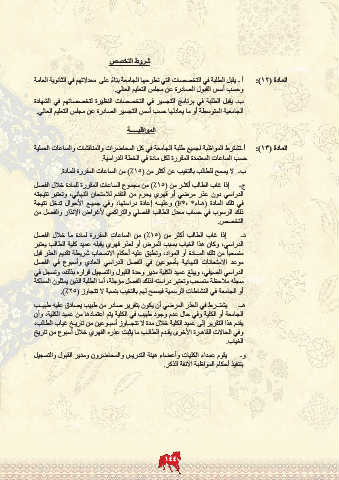 شروط التخصص
المادة (١٢):
أ ـ يقبل الطلبة في التخصصات التي تطرحها الجامعة بناءً على معدلاتهم في الثانوية العامة
وحسب أسس القبول الصادرة عن مجلس التعليم العالي.
ب ـ يقبل الطلبة في برنامج التجسير في التخصصات النظيرة لتخصصاتهم في الشهادة
الجامعية المتوسطة أو ما يعادلها حسب أسس التجسير الصادرة عن مجلس التعليم العالي.
المواظبــــة
المادة (١٣):
أ ـ تشترط المواظبة لجميع طلبة الجامعة في كل المحاضرات والمناقشات والساعات العملية
حسب الساعات المعتمدة المقررة لكل مادة في الخطة الدراسية.
ب ـ لا يسمح للطالب بالتغيب عن أكثر من (١٥٪) من الساعات المقررة للمادة.
ج ـ إذا غاب الطالب أكثر من (١٥٪) من مجموع الساعات المقررة للمادة خلال الفصل
الدراسي دون عذر مرضي أو قهري يحرم من التقدم للامتحان النهائي، وتعتبر نتيجته
في تلك المادة وعليه إعادة دراستها، وفي جميع الأحوال تدخل نتيجة
تلك الرسوب في حساب معدل الطالب الفصلي والتراكمي لأغراض الإنذار والفصل من
التخصص.
د ـ إذا غاب الطالب أكثر من (١٥٪) من الساعات المقررة لمادة ما خلال الفصل
الدراسي، وكان هذا الغياب بسبب المرض أو لعذر قهري يقبله عميد كلية الطالب يعتبر
منسحباً من تلك المادة أو المواد، وتطبق عليه أحكام الانسحاب شريطة تقديم العذر قبل
موعد الامتحانات النهائية بأسبوعين في الفصل الدراسي العادي وأسبوع في الفصل
الدراسي الصيفي، ويبلغ عميد الكلية مدير وحدة القبول والتسجيل قراره بذلك، وتسجل في
سجله ملاحظة منسحب وتعتبر دراسته لذلك الفصل مؤجلة، أما الطلبة الذين يمثلون المملكة
أو الجامعة في النشاطات الرسمية فيسمح لهم بالتغيب بنسبة لا تتجاوز
هـ ـ يشترط في العذر المرضي أن يكون بتقرير صادر من طبيب يصادق عليه طبيب
الجامعة أو الكلية وفي حال عدم وجود طبيب في الكلية يتم اعتمادها من عميد الكلية، وأن
يقدم هذا التقرير إلى عميد الكلية خلال مدة لا تتجاوز أسبوعين من تاريخ غياب الطالب،
وفي الحالات القاهرة الأخرى يقدم الطالب ما يثبت عذره القهري خلال أسبوع من تاريخ
الغياب.
و ـ يقوم عمداء الكليات وأعضاء هيئة التدريس والمحاضرون ومدير القبول والتسجيل
بتنفيذ أحكام المواظبة الآنفة الذكر.